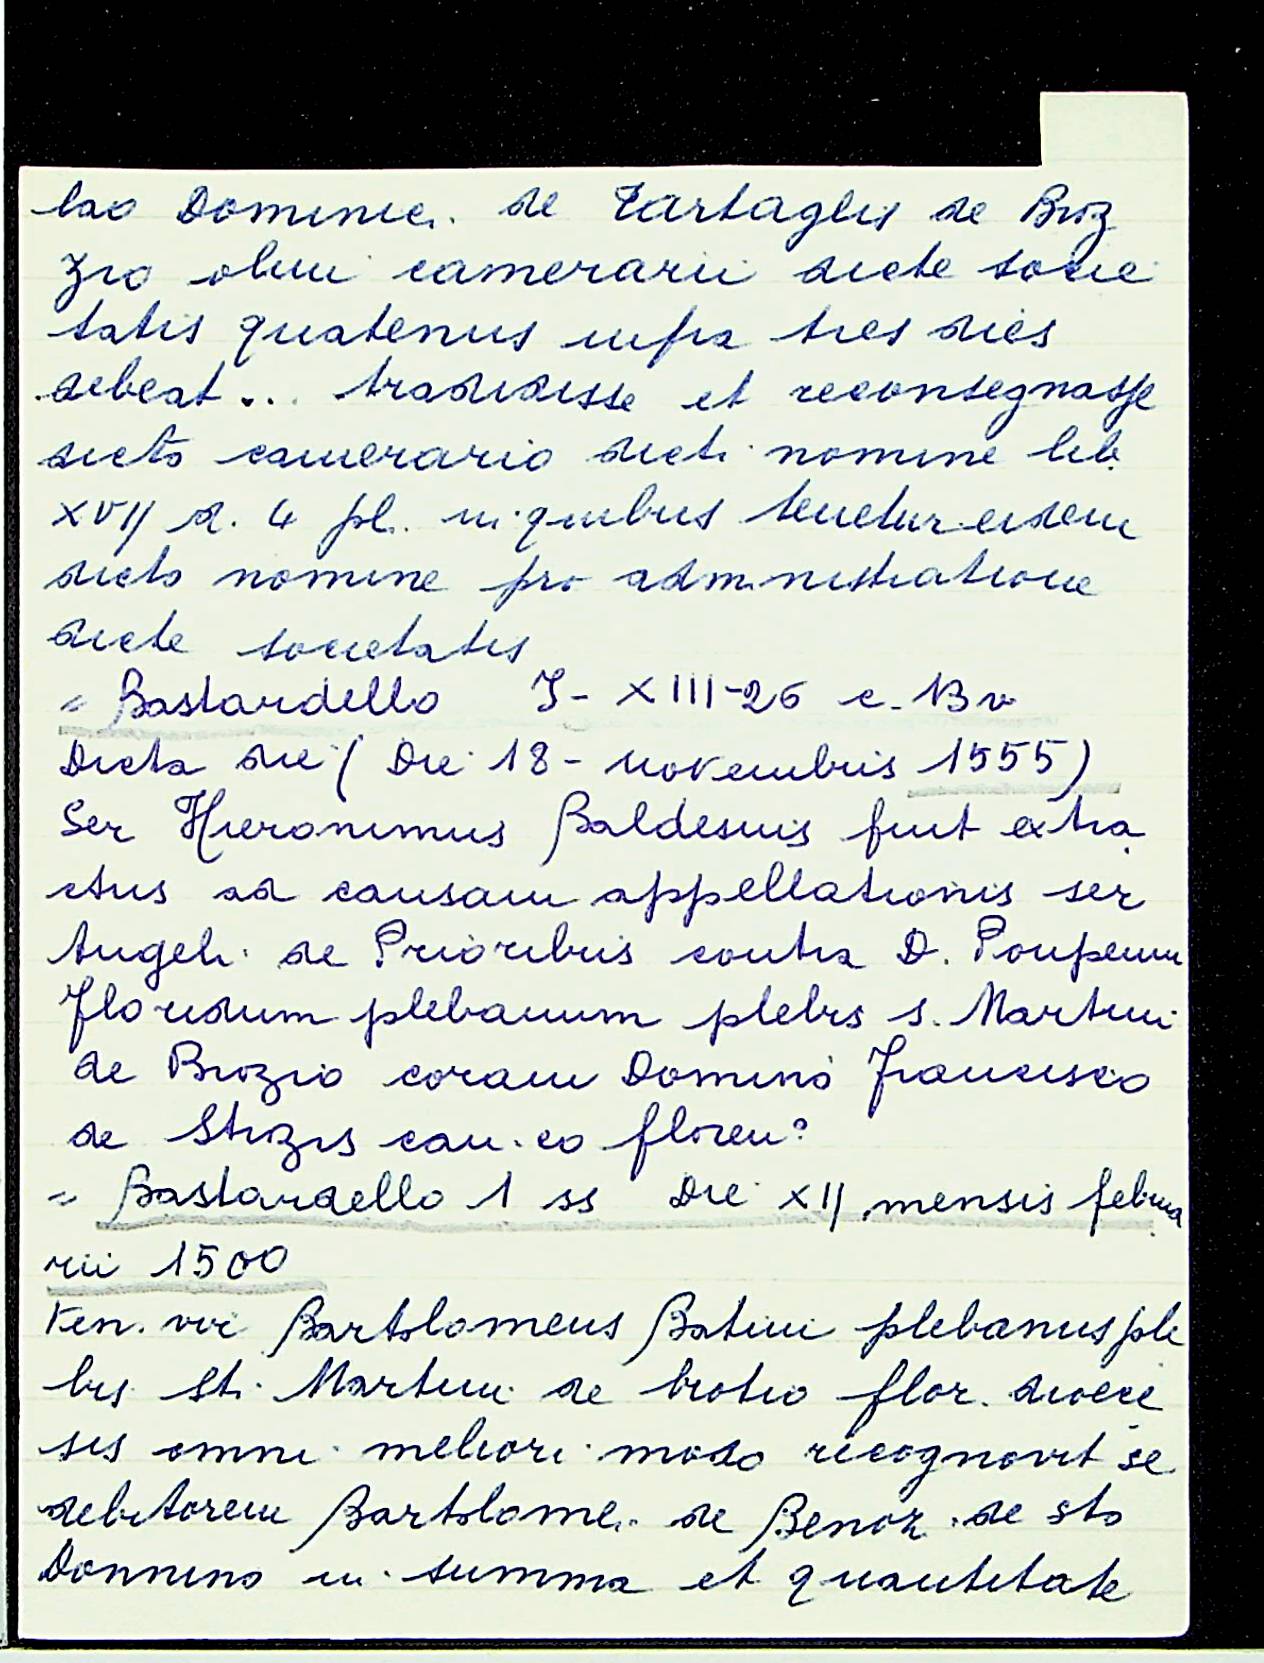 lao Dominici de Tartaglis de Broz
zio olim camerarii dicte socie
tatis quatenus infra tres dies
debeat... tradidisse et reconsegnasse
dicto camerario dicti nomine lib.
XVII d. 4 pl. in quibus tenetur eidem
dicto nomine pro administratione
dicte societatis
= Bastardello I - XIII-26 c. 13 v
Dicta die (Die 18 - novembris 1555)
Ser Hieronimus Baldesinis fuit extra
ctus ad causam appellationis ser
Angeli de Prioribus contra D. Pompeum
Floridum plebanum plebis s. Martini
de Brozio coram Domino Francisco
de Strozis can.co floren?
= Bastardello 1 ss Die XII mensis februa
rii 1500
Ven. vir Bartolomeus Batini plebanus ple
bis Sti Martini de brotio flor. dioece
sis omni meliori modo recognovit se
debitorem Bartolomei de Benoz. de sto
Donnino in summa et quantitate